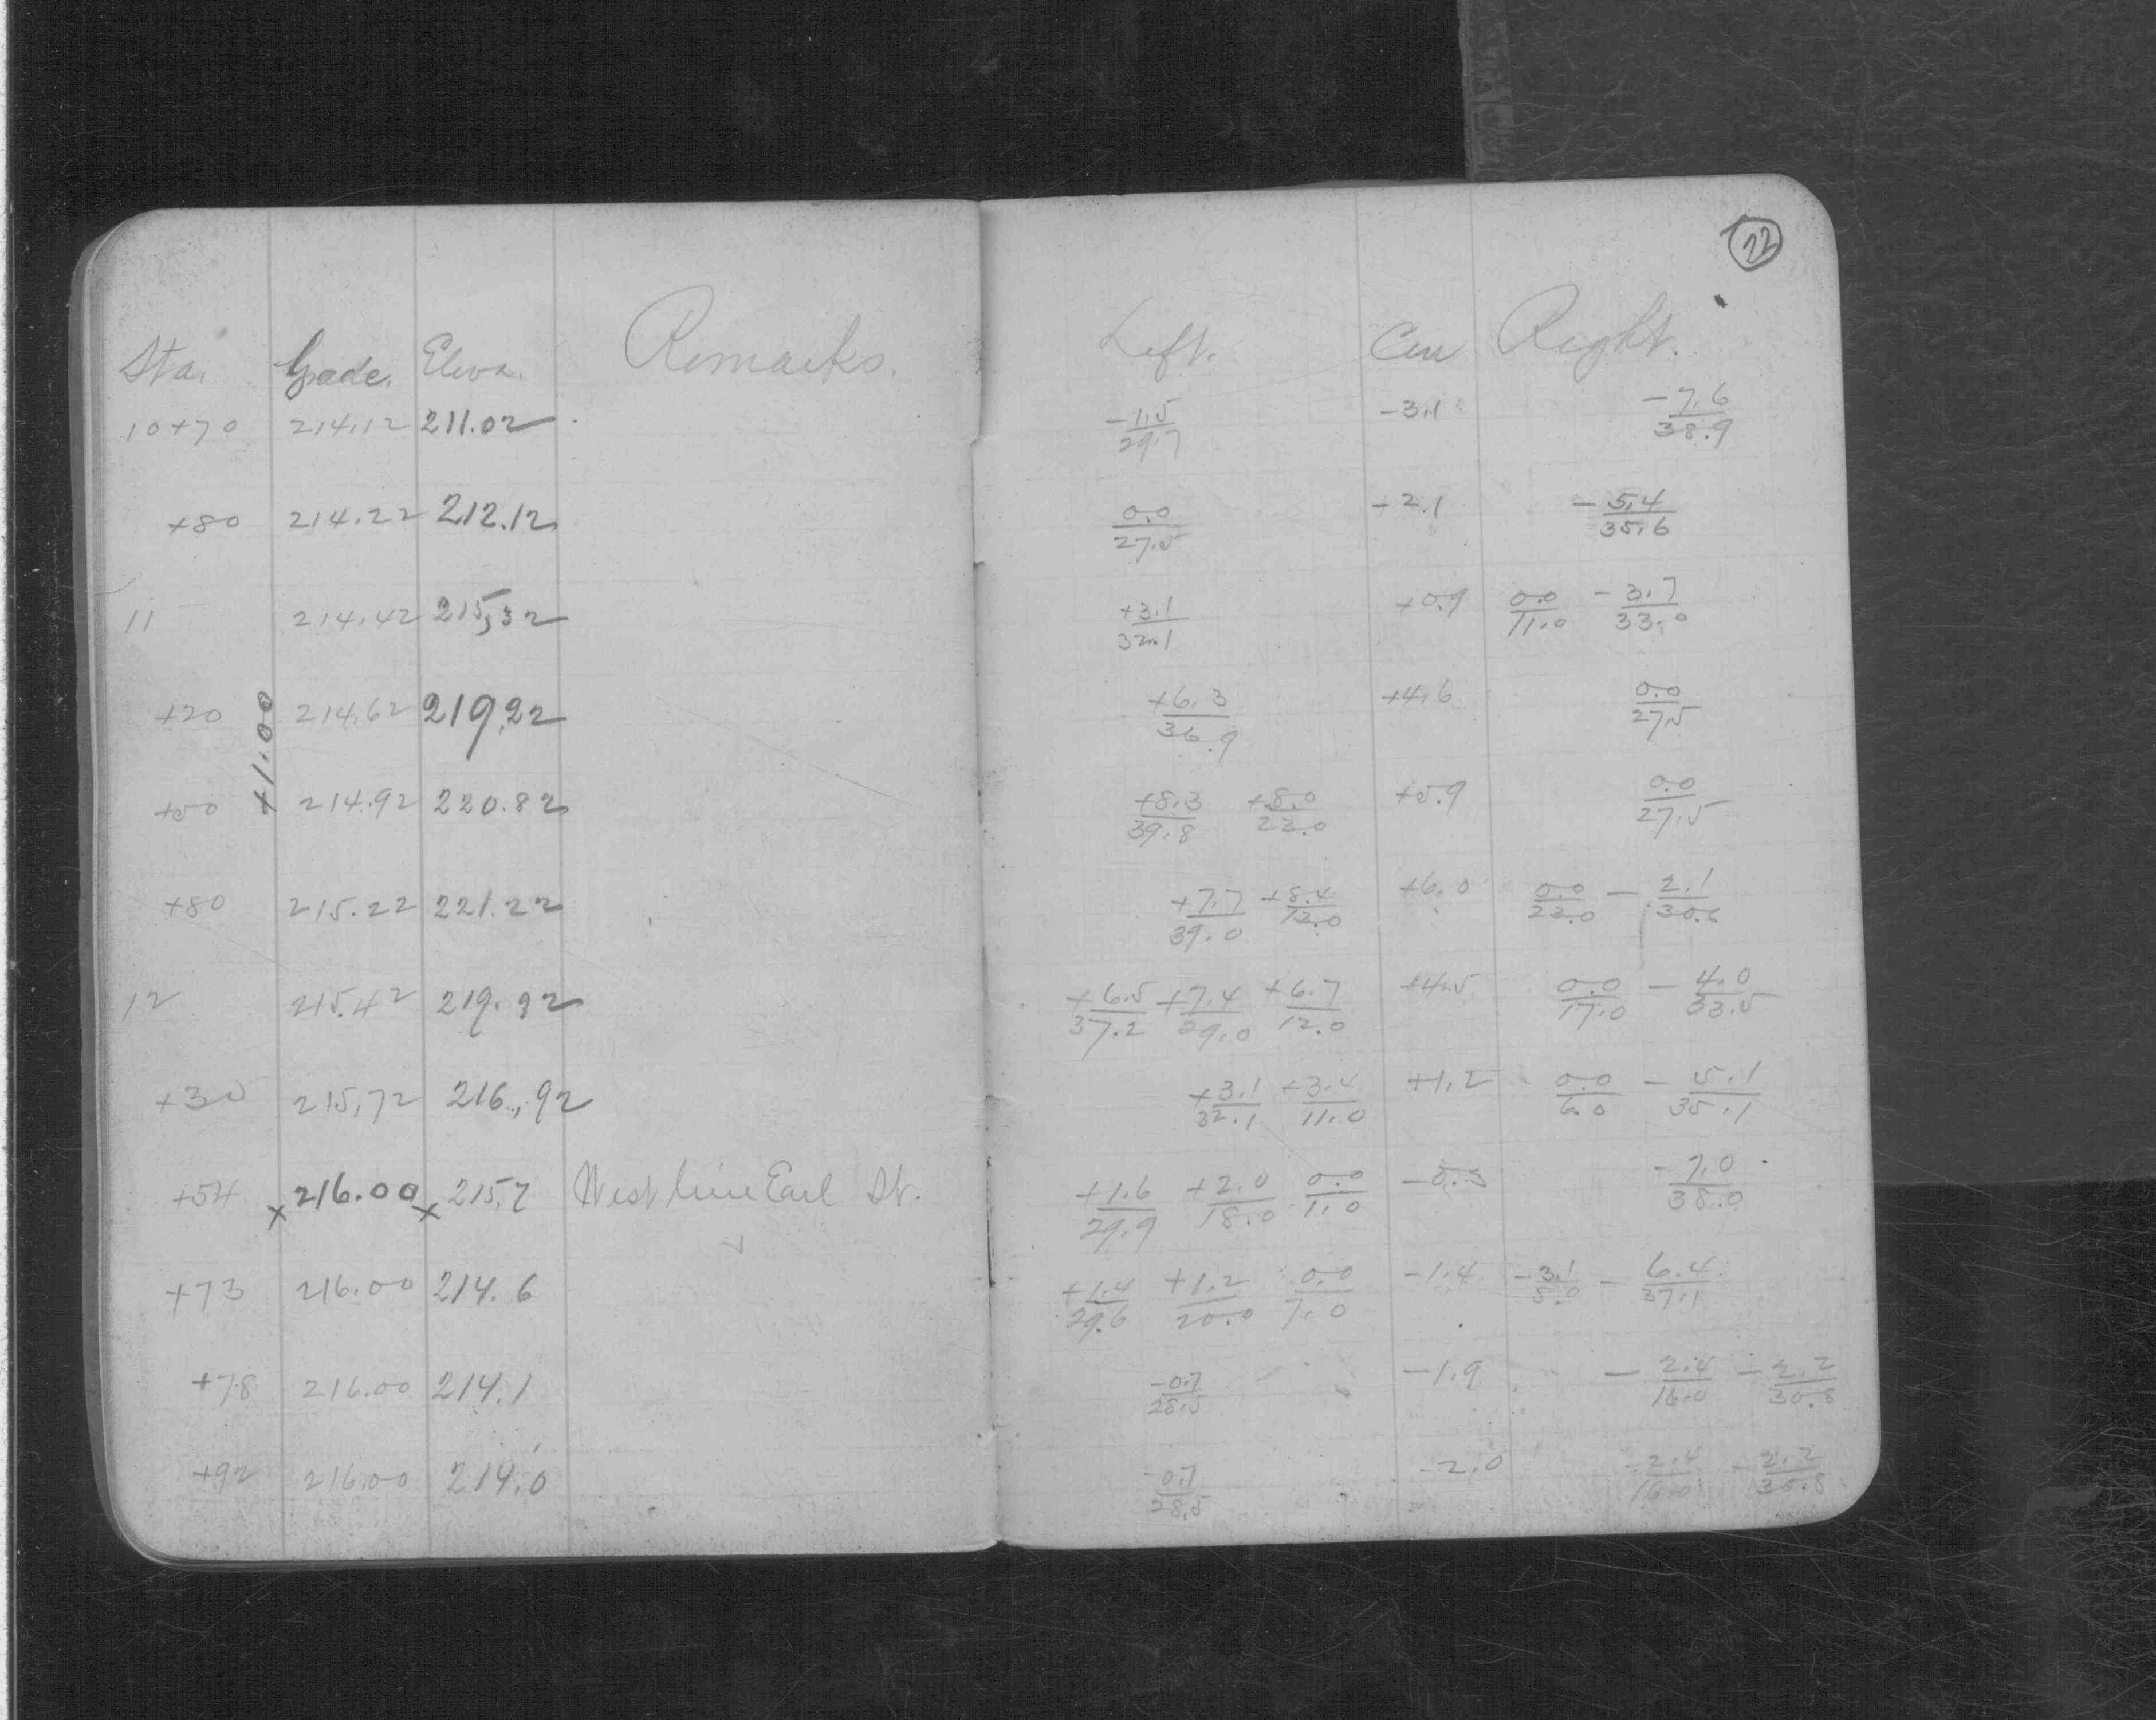 22
Sta. Grade. Eleva. Remarks. Left. Cen Right.
10+70 214.12 211.02 -1.5/29.7 -3.1 -7.6/38.9
+80 214.22 212.12 0.0/27.5 -2.1 -5.4/35.6
11 214.42 215.32 +3.1/32.1 +0.9 0.0/11.0 -3.7/33.0
+20 214.62 219.22 +6.3/36.9 +4.6 0.0/27.5
+1.00
+50 214.92 220.82 +8.3/39.8 +8.0/23.0 +5.9 0.0/27.5
+80 215.22 221.22 +7.7/39.0 +8.4/12.0 +6.0 0.0/23.0 -2.1/30.6
12 215.42 219.92 +6.5/37.2 +7.4/29.0 +6.7/12.0 +4.5 0.0/17.0 -4.0/33.5
+30 215.72 216.92 +3.1/32.1 +3.4/11.0 +1.2 0.0/6.0 -5.1/35.1
+54 x 216.00 x 215.7 West line Earl St. +1.6/29.9 +2.0/18.0 0.0/1.0 -0.3 -7.0/38.0
+73 216.00 214.6 +1.4/29.6 +1.2/20.0 0.0/7.0 -1.4 -3.1/8.0 -6.4/37.1
+78 216.00 214.1 -0.7/28.5 -1.9 -2.4/16.0 -2.2/30.8
+92 216.00 214.0 -0.7/28.5 -2.0 -2.4/16.0 -2.2/30.8